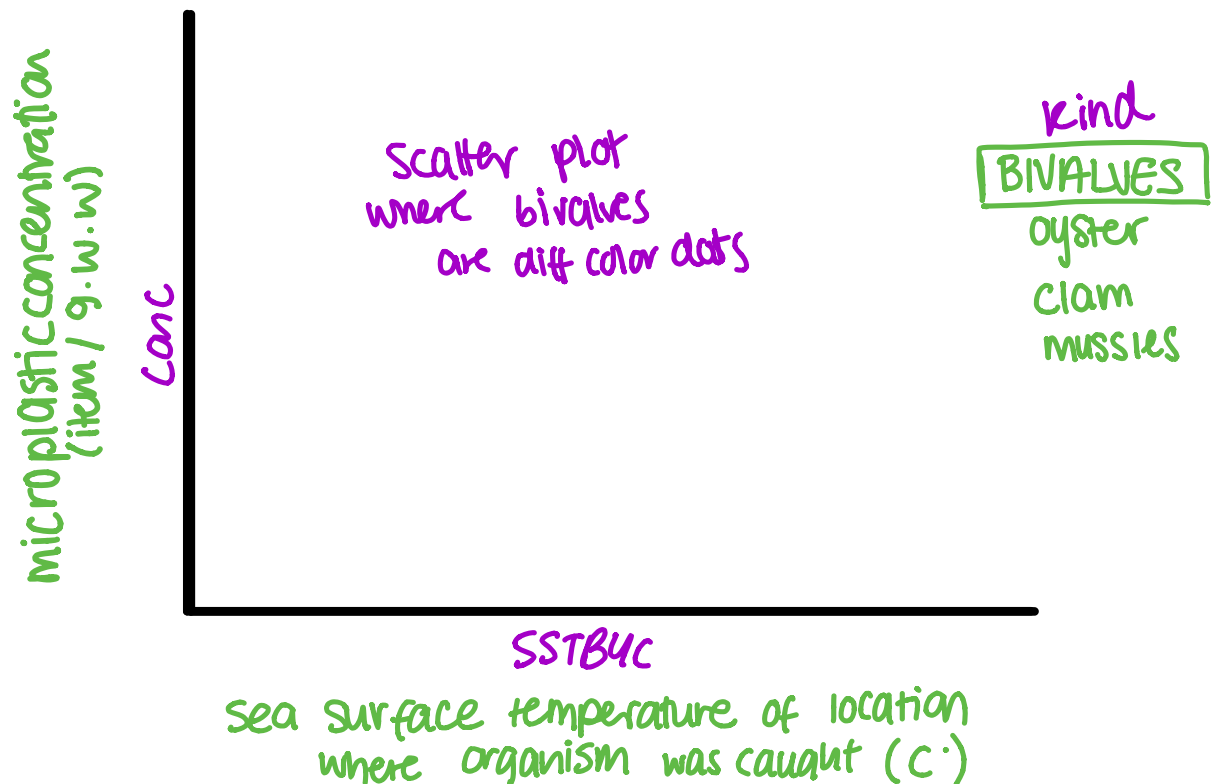 microplastic concentration
(item / g.w.w)
conc
scatter plot
where bivalves
are diff color dots
kind
BIVALVES
oyster
clam
mussles
SSTBYC
sea surface temperature of location
where organism was caught (C°)